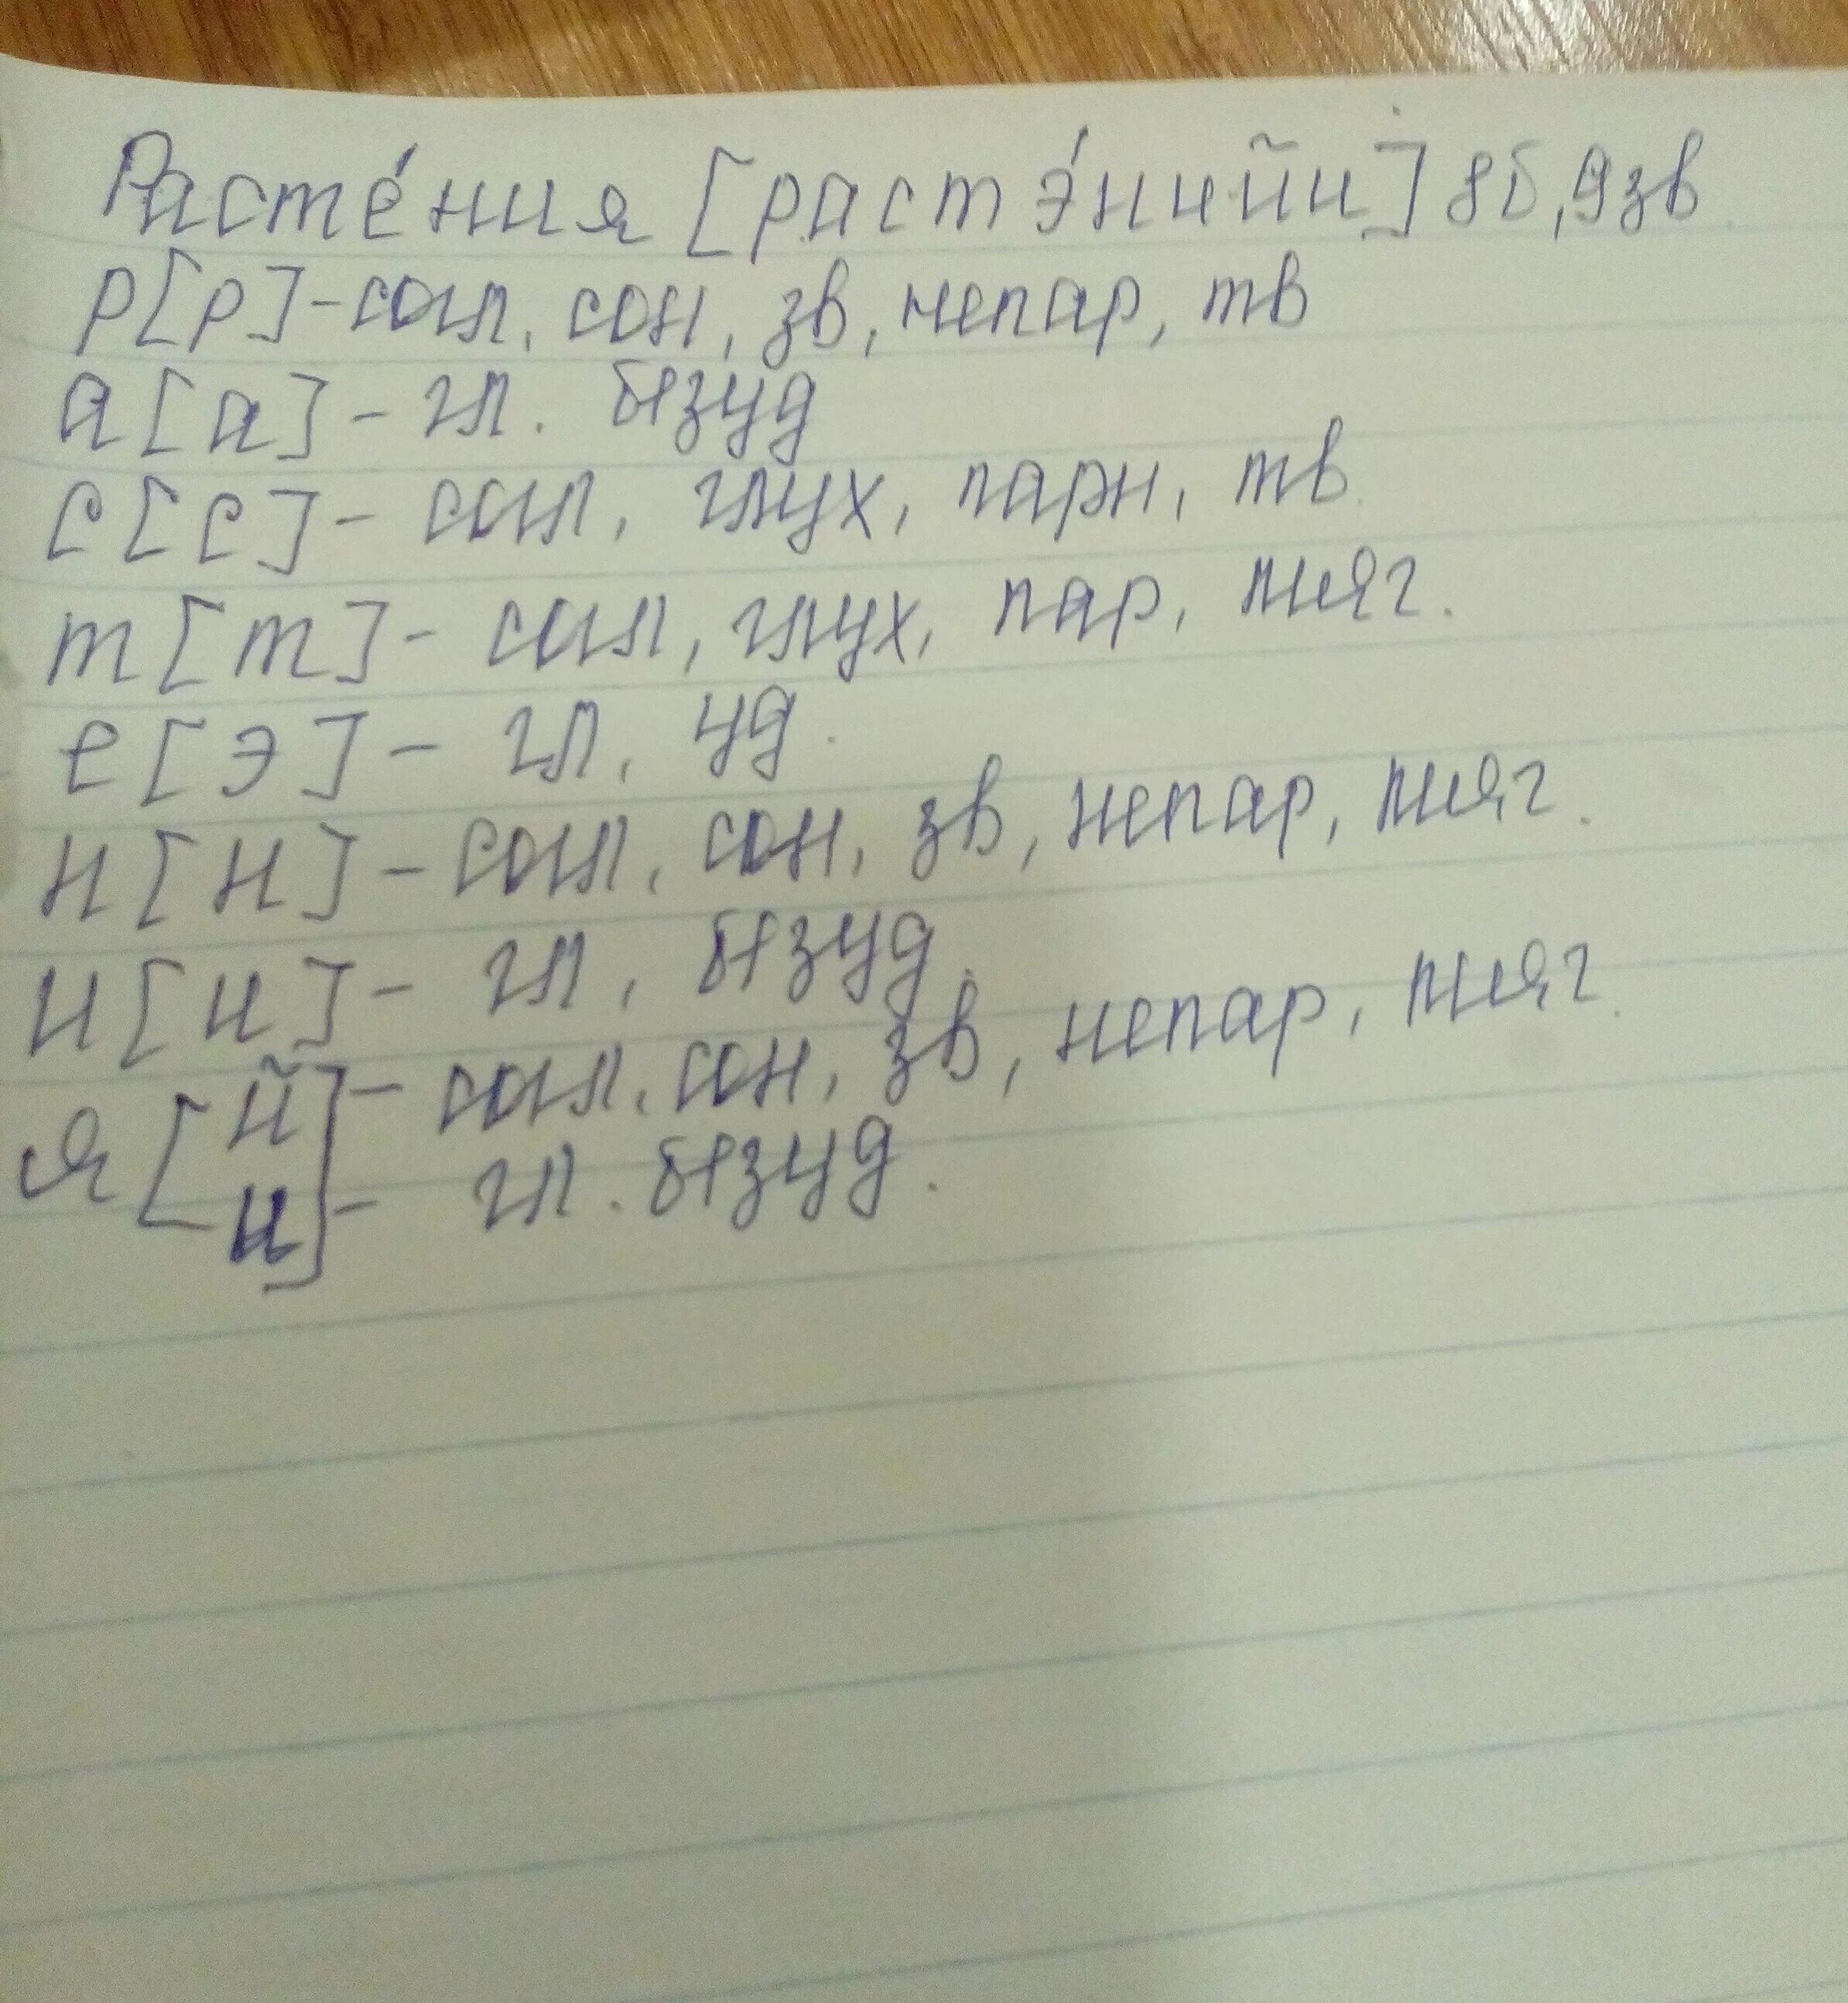 Расте́ния [растэ́нийи] 8б, 9зв
р[р]-согл, сон, зв, непар, тв
а[а]- гл. безуд
с[с]- согл, глух, парн, тв.
т[т]- согл, глух, пар, мяг.
е[э]- гл, уд.
н[н]-согл, сон, зв, непар, мяг.
и[и]- гл, безуд.
я[й - согл. сон, зв, непар, мяг.
и]- гл. безуд.